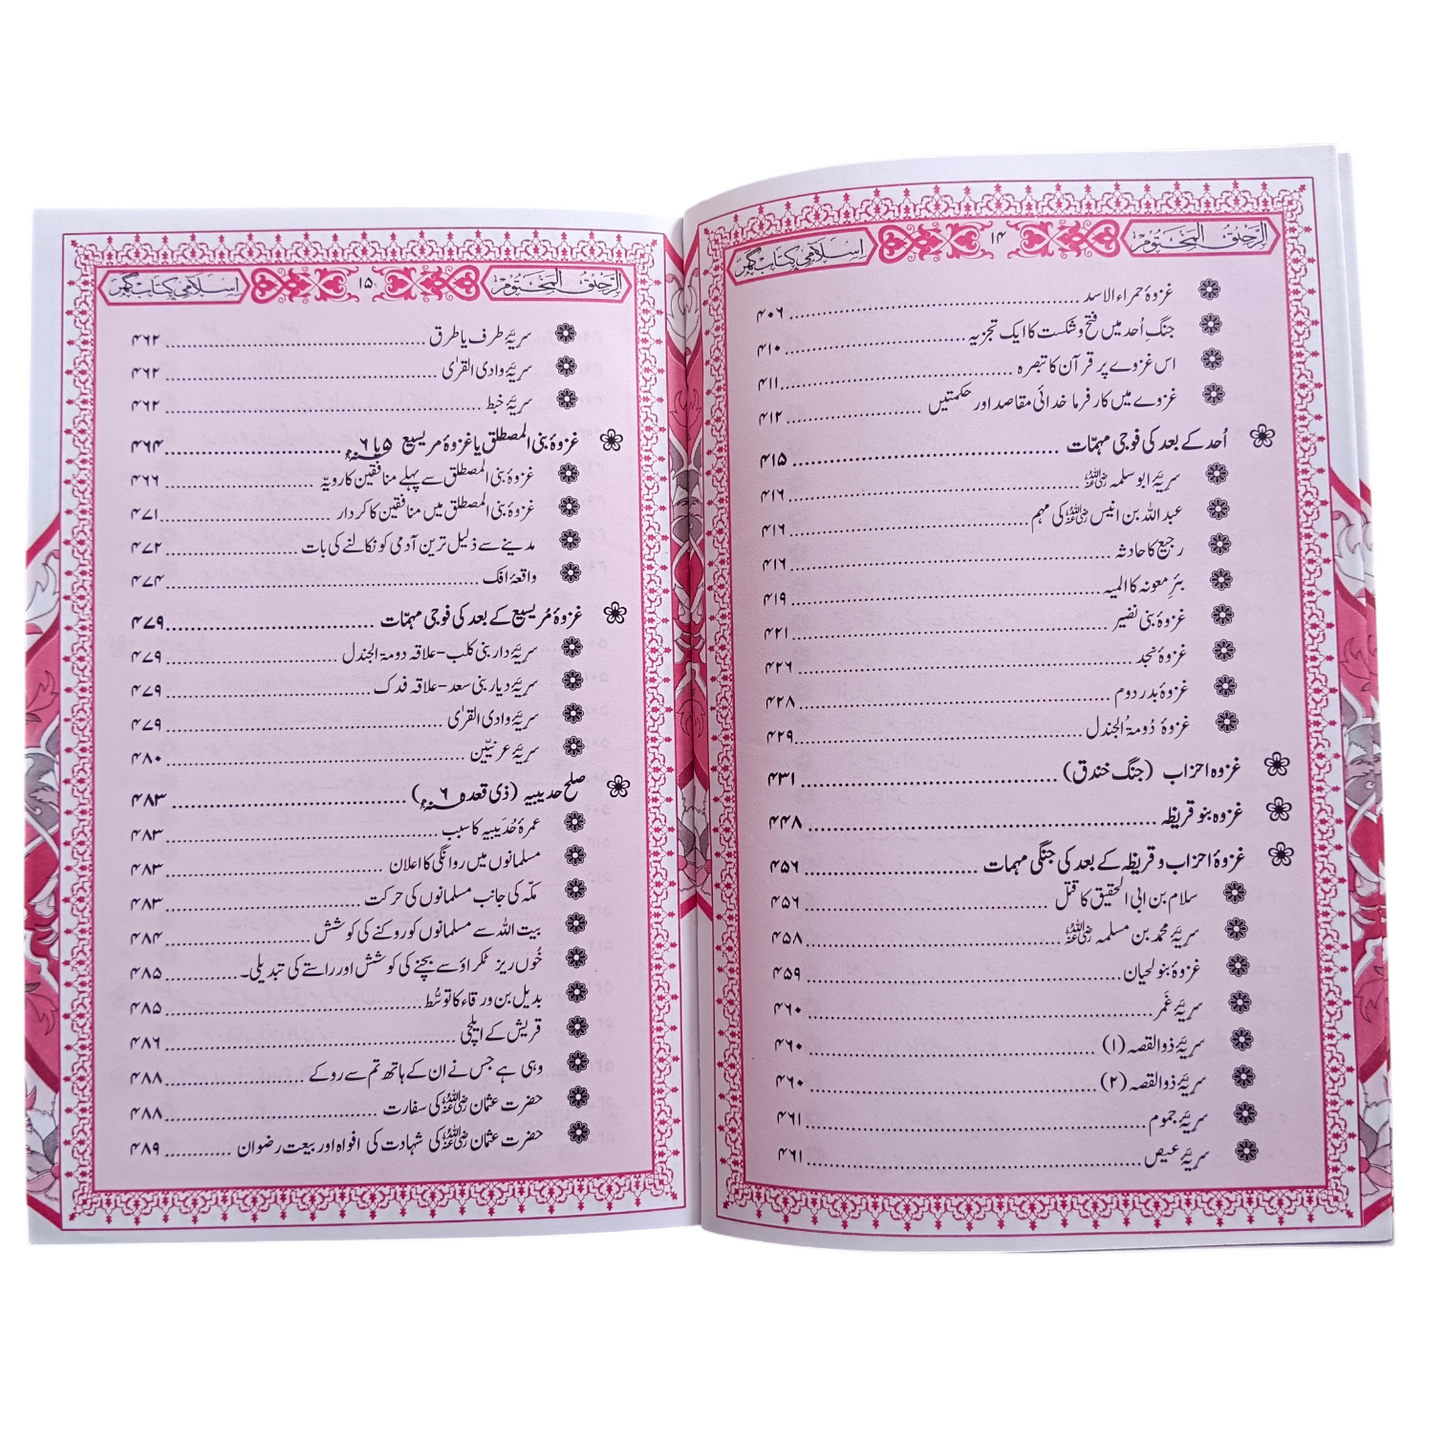 الرحیق المختوم ۱۴ اسلامی کتاب گھر
غزوۂ حمراء الاسد ۴۰۶
جنگِ اُحد میں فتح و شکست کا ایک تجزیہ ۴۱۰
اس غزوے پر قرآن کا تبصرہ ۴۱۱
غزوے میں کارفرما خدائی مقاصد اور حکمتیں ۴۱۲
اُحد کے بعد کی فوجی مہمّات ۴۱۵
سریّۂ ابو سلمہ رضی اللہ عنہ ۴۱۶
عبد اللہ بن انیس رضی اللہ عنہ کی مہم ۴۱۶
رجیع کا حادثہ ۴۱۶
بئرِ معونہ کا المیہ ۴۱۹
غزوۂ بنی نضیر ۴۲۱
غزوۂ نجد ۴۲۶
غزوۂ بدر دوم ۴۲۸
غزوۂ دُومۃُ الجندل ۴۲۹
غزوہ احزاب (جنگ خندق) ۴۳۱
غزوہ بنو قریظہ ۴۴۸
غزوۂ احزاب و قریظہ کے بعد کی جنگی مہمات ۴۵۶
سلام بن ابی الحقیق کا قتل ۴۵۶
سریّۂ محمد بن مسلمہ رضی اللہ عنہ ۴۵۸
غزوۂ بنو لحیان ۴۵۹
سریّۂ غَمر ۴۶۰
سریّۂ ذوالقصہ (۱) ۴۶۰
سریّۂ ذوالقصہ (۲) ۴۶۰
سریّۂ جموم ۴۶۱
سریّۂ عیص ۴۶۱
الرحیق المختوم ۱۵ اسلامی کتاب گھر
سریّۂ طرف یا طرق ۴۶۲
سریّۂ وادی القریٰ ۴۶۲
سریّۂ خبط ۴۶۲
غزوۂ بنی المصطلق یا غزوۂ مریسیع ۵ یا ۶ھ ۴۶۴
غزوۂ بنی المصطلق سے پہلے منافقین کا رویّہ ۴۶۶
غزوۂ بنی المصطلق میں منافقین کا کردار ۴۷۱
مدینے سے ذلیل ترین آدمی کو نکالنے کی بات ۴۷۲
واقعۂ افک ۴۷۴
غزوۂ مُریسیع کے بعد کی فوجی مہمّات ۴۷۹
سریّۂ دار بنی کلب - علاقہ دومۃ الجندل ۴۷۹
سریّۂ دیار بنی سعد - علاقہ فدک ۴۷۹
سریّۂ وادی القریٰ ۴۷۹
سریّۂ عرنیّین ۴۸۰
صلح حدیبیہ (ذی قعدہ ۶ھ) ۴۸۳
عمرۂ حُدَیبیہ کا سبب ۴۸۳
مسلمانوں میں روانگی کا اعلان ۴۸۳
مکّہ کی جانب مسلمانوں کی حرکت ۴۸۳
بیت اللہ سے مسلمانوں کو روکنے کی کوشش ۴۸۴
خُوں ریز ٹکراؤ سے بچنے کی کوشش اور راستے کی تبدیلی۔ ۴۸۵
بدیل بن ورقاء کا توسُّط ۴۸۵
قریش کے ایلچی ۴۸۶
وہی ہے جس نے ان کے ہاتھ تم سے روکے ۴۸۸
حضرت عثمان رضی اللہ عنہ کی سفارت ۴۸۸
حضرت عثمان رضی اللہ عنہ کی شہادت کی افواہ اور بیعت رضوان ۴۸۹